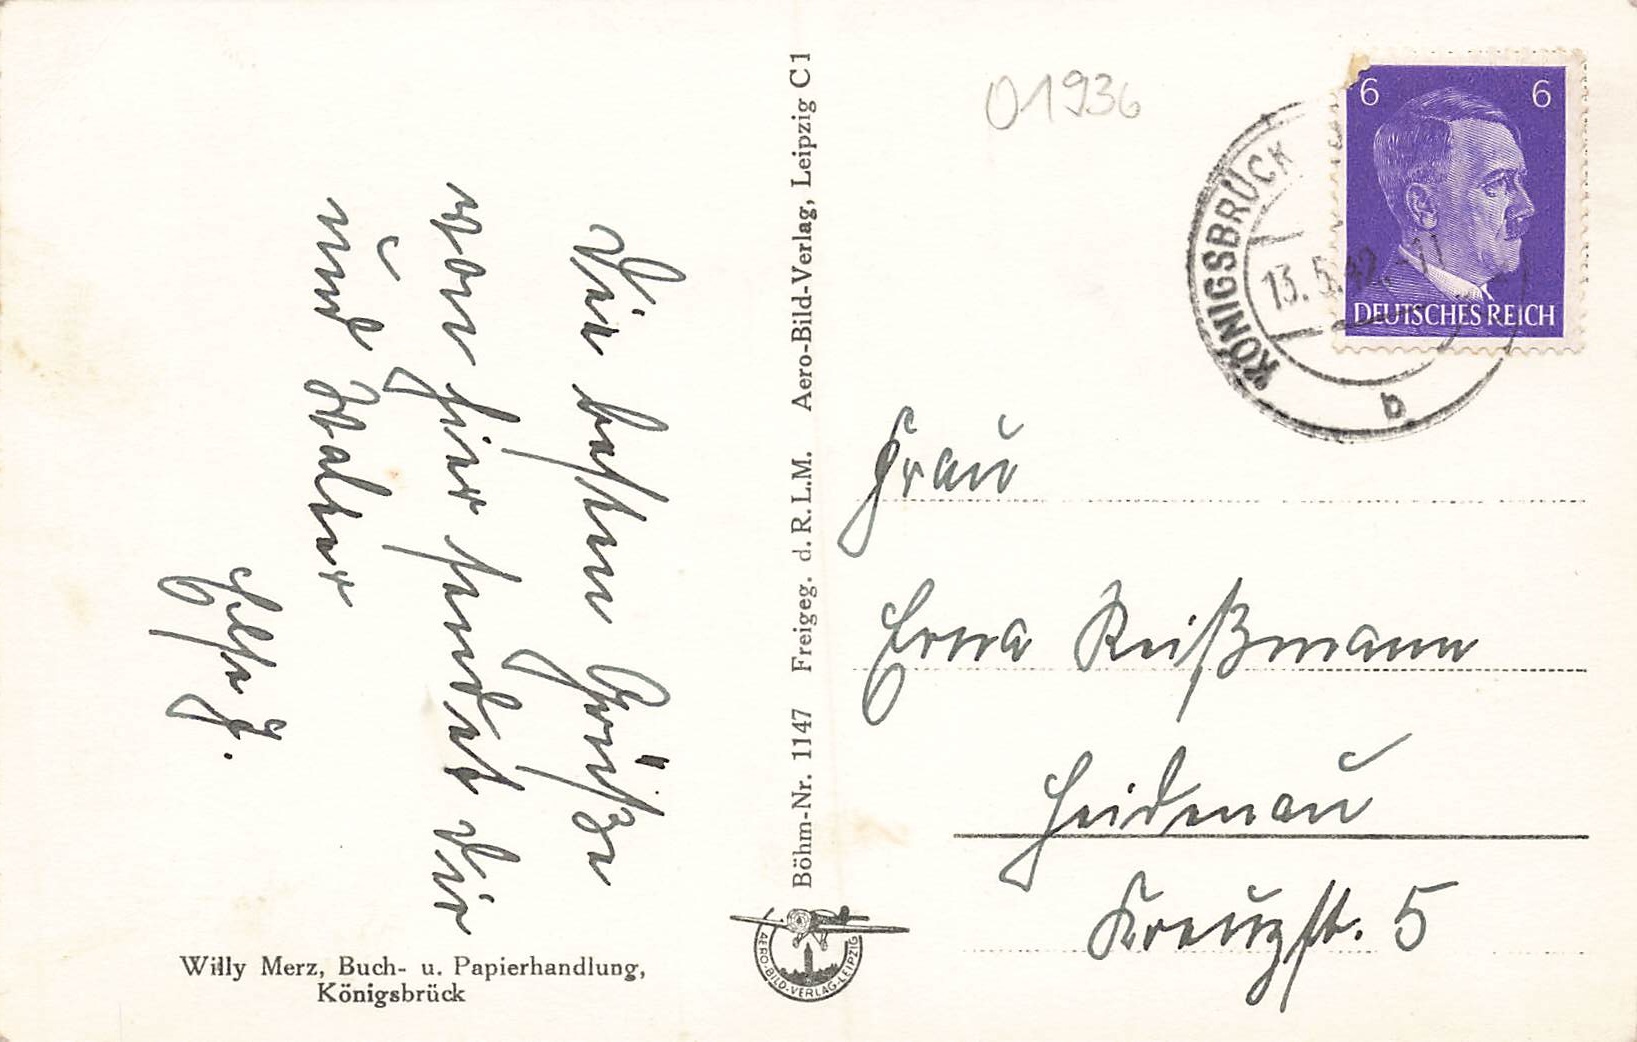 Die besten Grüße
von hier sendet Dir
und Walter
Willy Merz, Buch- u. Papierhandlung,
Königsbrück
Böhm-Nr. 1147 Freigeg. d. R. L. M. Aero-Bild-Verlag, Leipzig C 1
AERO-BILD-VERLAG-LEIPZIG
01936
6 6
DEUTSCHES REICH
KÖNIGSBRÜCK
13.5.42.-11
b
Frau
Erna Reißmann
Heidenau
Kreuzst. 5